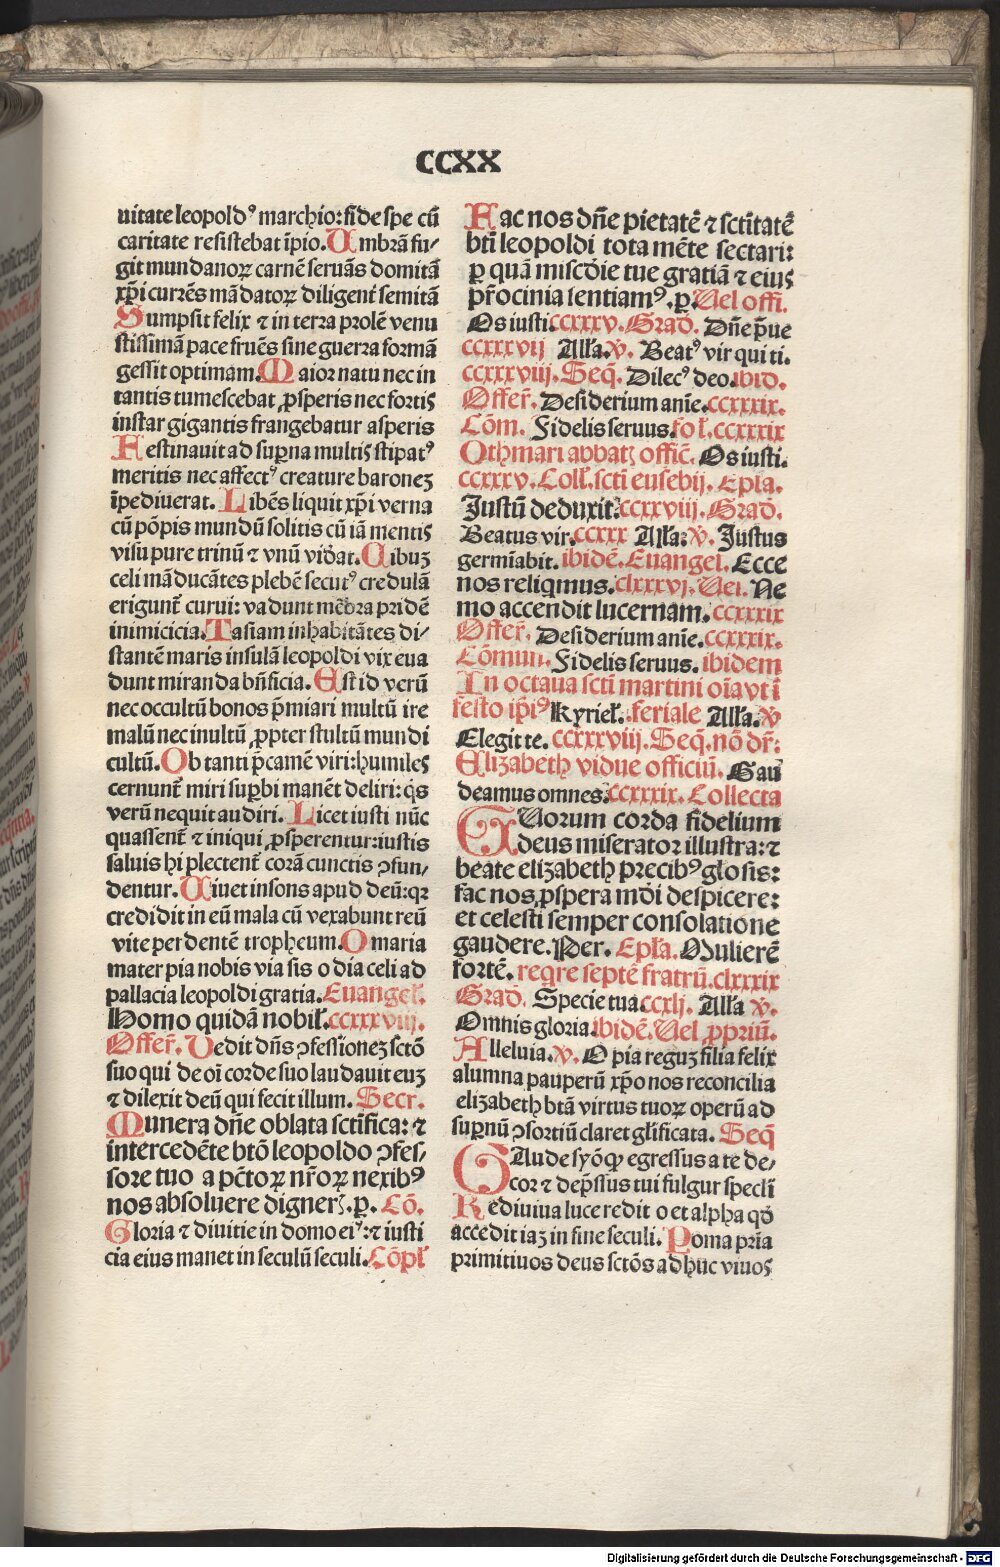 CCXX
uitate leopoldꝰ marchio: fide spe cū
caritate resistebat īpio. Umbrā fu/
git mundanoꝝ carnē seruās domitā
xp̄i currēs mādatoꝝ diligent᷑ semitā
Sumpsit felix ⁊ in terra prolē venu
stissimā pace fruēs sine guerra formā
gessit optimam. Maior natu nec in
tantis tumescebat ꝓsperis nec fortis
instar gigantis frangebatur asperis
Festinauit ad supͬna multis stipatꝰ
meritis nec affectꝰ creature baronez
īpediuerat. Libēs liquit xp̄i verna
cū pōpis mundū solitis cū iā mentis
visu pure trinū ⁊ vnū vidꝫat. Cibuz
celi māducātes plebē secutꝰ credulā
erigunt᷑ curui: vadunt mēbra pridē
inimicicia. Tasiam inhabitātes di/
stantē maris insulā leopoldi vix eua
dunt miranda bn̄ficia. Est id verū
nec occultū bonos p̄miari multū ire
malū nec inultū ꝓpter stultū mundi
cultū. Ob tanti p̄camē viri: humiles
cernunt᷑ miri suꝑbi manēt deliri: qͥs
verū nequit audiri. Licet iusti nūc
quassent᷑ ⁊ iniqui ꝓsperentur: iustis
saluis hi plectent᷑ corā cunctis ꝯfun/
dentur. Uiuet insons apud deū: qꝛ
credidit in eū mala cū vexabunt reū
vite perdentē tropheum. O maria
mater pia nobis via sis o dia celi ad
pallacia leopoldi gratia. Euangel̄.
Homo quidā nobil̄. ccxxxviij.
Offer̄. Uedit dn̄s ꝯfessionez sctō
suo qui de oī corde suo laudauit euz
⁊ dilexit deū qui fecit illum. Secr.
Munera dn̄e oblata sctīfica: ⁊
intercedēte btō leopoldo ꝯfes/
sore tuo a pctōꝝ nr̄oꝝ nexibꝰ
nos absoluere digner̄. ꝑ. Cō.
Gloria ⁊ diuitie in domo eiꝰ: ⁊ iusti
cia eius manet in seculū seculi. Cōpl̄
Fac nos dn̄e pietatē ⁊ sctītatē
btī leopoldi tota mēte sectari:
ꝑ quā miscdīe tue gratiā ⁊ eius
pr̄ocinia sentiamꝰ. ꝑ. Uel offi.
Os iusti ccxxxv. Grad̄. Dn̄e p̄ue
ccxxxvij All̄a. ℣. Beatꝰ vir qui ti.
ccxxxviij. Seq̄. Dilecꝰ deo. ibid.
Offer̄. Desiderium anīe. ccxxxix.
Cōm. Fidelis seruus. fol̄. ccxxxix
Othmari abbatꝫ offic̄. Os iusti.
ccxxxv. Coll̄. sctī eusebij. Epl̄a.
Justū deduxit: ccxxviij. Grad̄.
Beatus vir. ccxxx All̄a: ℣. Justus
germīabit. ibidē. Euangel̄. Ecce
nos reliqͥmus. clxxxvj. Uel. Ne
mo accendit lucernam. ccxxxix
Offer̄. Desiderium anīe. ccxxxix.
Cōmun. Fidelis seruus. ibidem
In octaua sctī martini oīa vt ī
festo ip̄iꝰ Kyriel̄. feriale All̄a. ℣
Elegit te. ccxxxviij. Seq̄. nō dr̄:
Elizabeth vidue officiū. Gau
deamus omnes: ccxxxix. Collecta
TUorum corda fidelium
deus miserator illustra: ⁊
beate elizabeth precibꝰ glosis:
fac nos ꝓspera mdī despicere:
et celesti semper consolatione
gaudere. Per. Epl̄a. Mulierē
fortē. reqre septē fratrū. clxxxix
Grad̄. Specie tua. ccxlj. All̄a ℣.
Omnis gloria. ibidē. Uel ꝓpriū.
Alleluia. ℣. O pia reguz filia felix
alumna pauperū xp̄o nos reconcilia
elizabeth btā virtus tuoꝝ operū ad
supͬnū ꝯsortiū claret glīficata. Seq̄
GAude syōꝙ egressus a te de/
cor ⁊ dep̄ssus tui fulgur specłi
Rediuiua luce redit o et alpha qd̄
accedit iaꝫ in fine seculi. Poma pͥria
primitiuos deus sctōs adhuc viuos
Digitalisierung gefördert durch die Deutsche Forschungsgemeinschaft - DFG